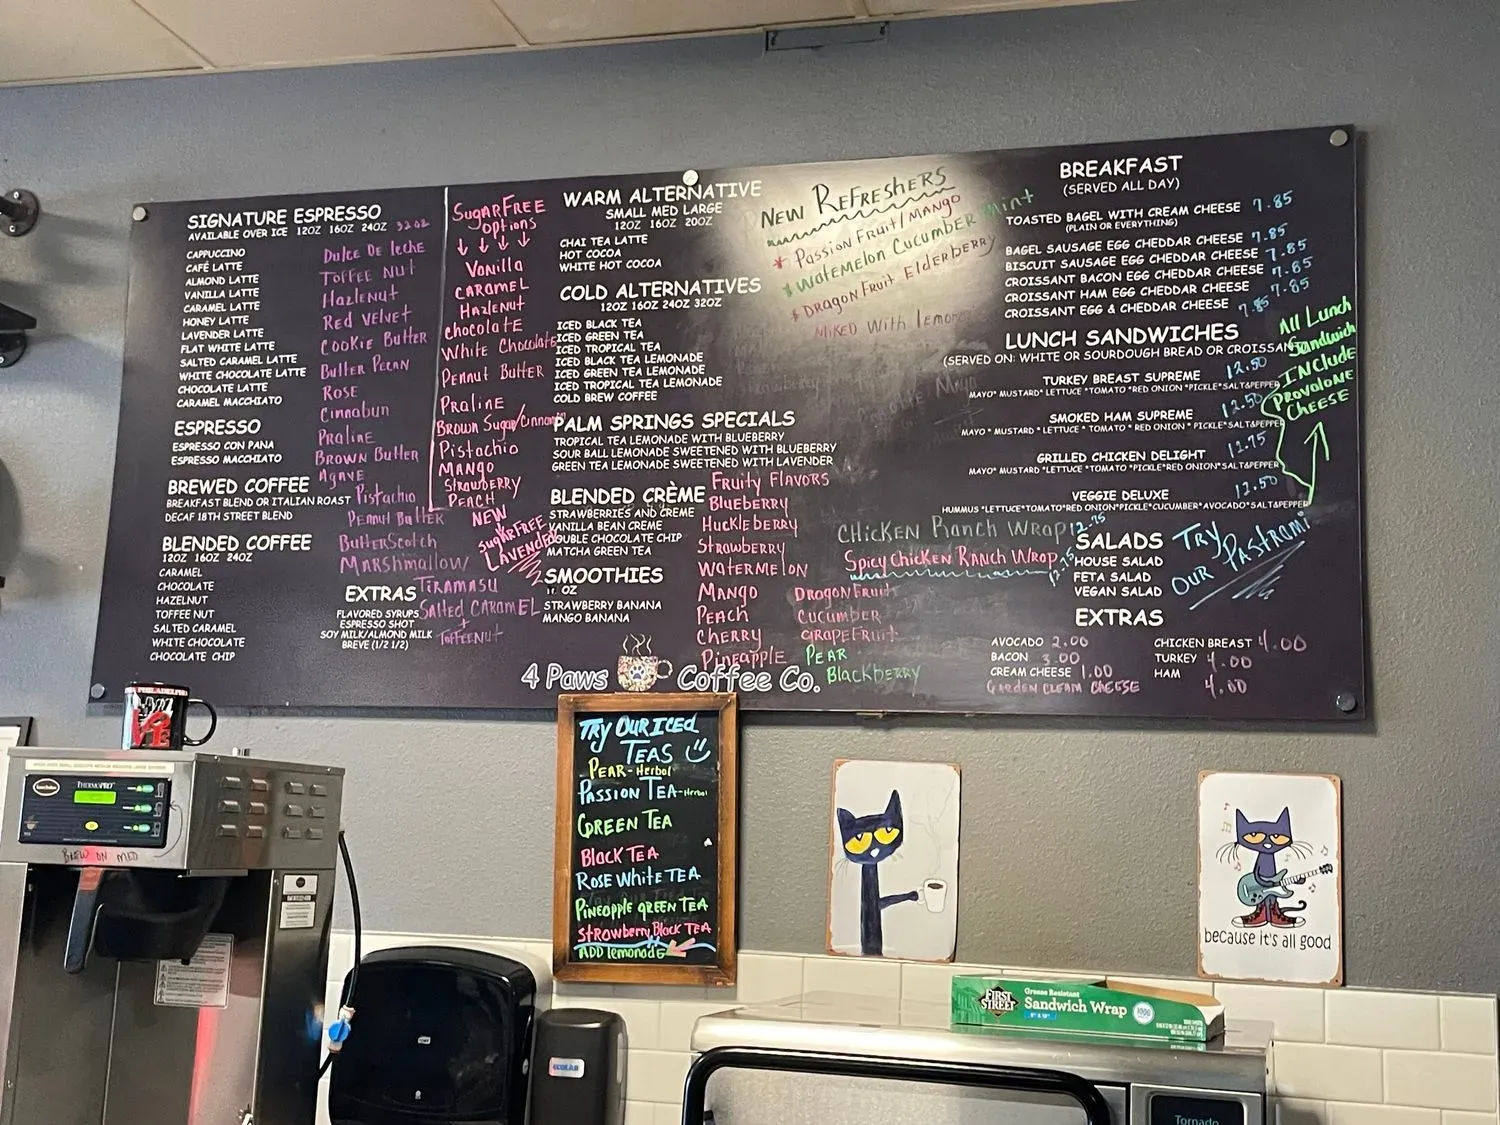 SIGNATURE ESPRESSO
AVAILABLE OVER ICE 12OZ 16OZ 24OZ 32oz
CAPPUCCINO
CAFÉ LATTE
ALMOND LATTE
VANILLA LATTE
CARAMEL LATTE
HONEY LATTE
LAVENDER LATTE
FLAT WHITE LATTE
SALTED CARAMEL LATTE
WHITE CHOCOLATE LATTE
CHOCOLATE LATTE
CARAMEL MACCHIATO
ESPRESSO
ESPRESSO CON PANA
ESPRESSO MACCHIATO
BREWED COFFEE
BREAKFAST BLEND OR ITALIAN ROAST
DECAF 18TH STREET BLEND
BLENDED COFFEE
12OZ 16OZ 24OZ
CARAMEL
CHOCOLATE
HAZELNUT
TOFFEE NUT
SALTED CARAMEL
WHITE CHOCOLATE
CHOCOLATE CHIP
Dulce De leche
Toffee Nut
Hazlenut
Red Velvet
Cookie Butter
Butter Pecan
Rose
Cinnabun
Praline
Brown Butter
Agave
Pistachio
Peanut Butter
ButterScotch
Marshmallow
Tiramasu
Salted Caramel
+
Toffeenut
EXTRAS
FLAVORED SYRUPS
ESPRESSO SHOT
SOY MILK/ALMOND MILK
BREVE (1/2 1/2)
SugarFree
Options
Vanilla
Caramel
Hazlenut
Chocolate
White Chocolate
Peanut Butter
Praline
Brown Sugar/Cinnamon
Pistachio
Mango
Strawberry
Peach
NEW
SugarFree
Lavender
WARM ALTERNATIVE
SMALL MED LARGE
12OZ 16OZ 20OZ
CHAI TEA LATTE
HOT COCOA
WHITE HOT COCOA
COLD ALTERNATIVES
12OZ 16OZ 24OZ 32OZ
ICED BLACK TEA
ICED GREEN TEA
ICED TROPICAL TEA
ICED BLACK TEA LEMONADE
ICED GREEN TEA LEMONADE
ICED TROPICAL TEA LEMONADE
COLD BREW COFFEE
PALM SPRINGS SPECIALS
TROPICAL TEA LEMONADE WITH BLUEBERRY
SOUR BALL LEMONADE SWEETENED WITH BLUEBERRY
GREEN TEA LEMONADE SWEETENED WITH LAVENDER
BLENDED CRÈME
STRAWBERRIES AND CREME
VANILLA BEAN CREME
DOUBLE CHOCOLATE CHIP
MATCHA GREEN TEA
SMOOTHIES
OZ
STRAWBERRY BANANA
MANGO BANANA
Fruity Flavors
Blueberry
Huckleberry
Strawberry
Watermelon
Mango
Peach
Cherry
Pineapple
DragonFruit
Cucumber
GrapeFruit
Pear
Blackberry
NEW Refreshers
* Passion Fruit/Mango
* Watemelon Cucumber Mint
* Dragon Fruit Elderberry
Mixed With lemon
Chicken Ranch Wrap 12.75
Spicy Chicken Ranch Wrap 12.75
BREAKFAST
(SERVED ALL DAY)
TOASTED BAGEL WITH CREAM CHEESE 7.85
(PLAIN OR EVERYTHING)
BAGEL SAUSAGE EGG CHEDDAR CHEESE 7.85
BISCUIT SAUSAGE EGG CHEDDAR CHEESE 7.85
CROISSANT BACON EGG CHEDDAR CHEESE 7.85
CROISSANT HAM EGG CHEDDAR CHEESE 7.85
CROISSANT EGG & CHEDDAR CHEESE 7.85
LUNCH SANDWICHES
(SERVED ON: WHITE OR SOURDOUGH BREAD OR CROISSANT
TURKEY BREAST SUPREME 12.50
MAYO* MUSTARD *LETTUCE *TOMATO *RED ONION *PICKLE*SALT&PEPPER
SMOKED HAM SUPREME 12.50
MAYO * MUSTARD * LETTUCE * TOMATO * RED ONION *PICKLE*SALT&PEPPER
GRILLED CHICKEN DELIGHT 12.75
MAYO* MUSTARD *LETTUCE *TOMATO *PICKLE*RED ONION*SALT&PEPPER
VEGGIE DELUXE 12.50
HUMMUS *LETTUCE*TOMATO*RED ONION*PICKLE*CUCUMBER*AVOCADO*SALT&PEPPER
All Lunch
Sandwich
INCLUDE
Provolone
Cheese
SALADS
HOUSE SALAD
FETA SALAD
VEGAN SALAD
TRY
OUR Pastrami
EXTRAS
AVOCADO 2.00
BACON 3.00
CREAM CHEESE 1.00
Garden Cream Cheese
CHICKEN BREAST 4.00
TURKEY 4.00
HAM 4.00
4 Paws Coffee Co.
Try Our Iced
Teas
Pear - Herbal
Passion Tea - Herbal
Green Tea
Black Tea
Rose White Tea
Pineapple green Tea
Strawberry Black Tea
ADD lemonade
PHILADELPHIA
THERMOPRO
BREW ON MED
ECOLAB
because it's all good
FIRST STREET
Grease Resistant
Sandwich Wrap
Tornado